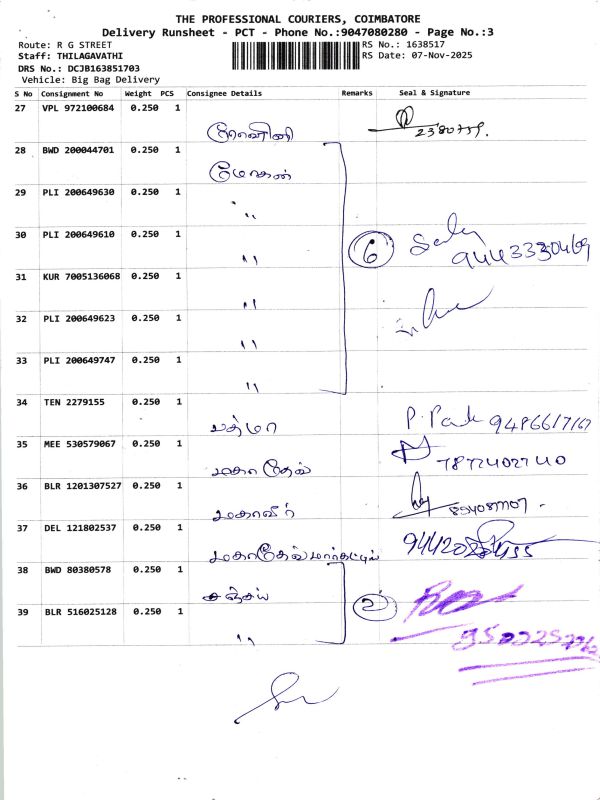 THE PROFESSIONAL COURIERS, COIMBATORE
Delivery Runsheet - PCT - Phone No.:9047080280 - Page No.:3
Route: R G STREET
Staff: THILAGAVATHI
DRS No.: DCJB163851703
Vehicle: Big Bag Delivery
RS No.: 1638517
RS Date: 07-Nov-2025
S No Consignment No Weight PCS Consignee Details Remarks Seal & Signature
27 VPL 972100684 0.250 1
28 BWD 200044701 0.250 1 மோகன்
29 PLI 200649630 0.250 1 "
30 PLI 200649610 0.250 1 " 6 9443330469
31 KUR 7005136068 0.250 1 "
32 PLI 200649623 0.250 1 "
33 PLI 200649747 0.250 1 "
34 TEN 2279155 0.250 1 பத்மா
35 MEE 530579067 0.250 1 மகாதேவ்
36 BLR 1201307527 0.250 1 மகாவீர்
37 DEL 121802537 0.250 1
38 BWD 80380578 0.250 1 சஞ்சய் 2
39 BLR 516025128 0.250 1 "